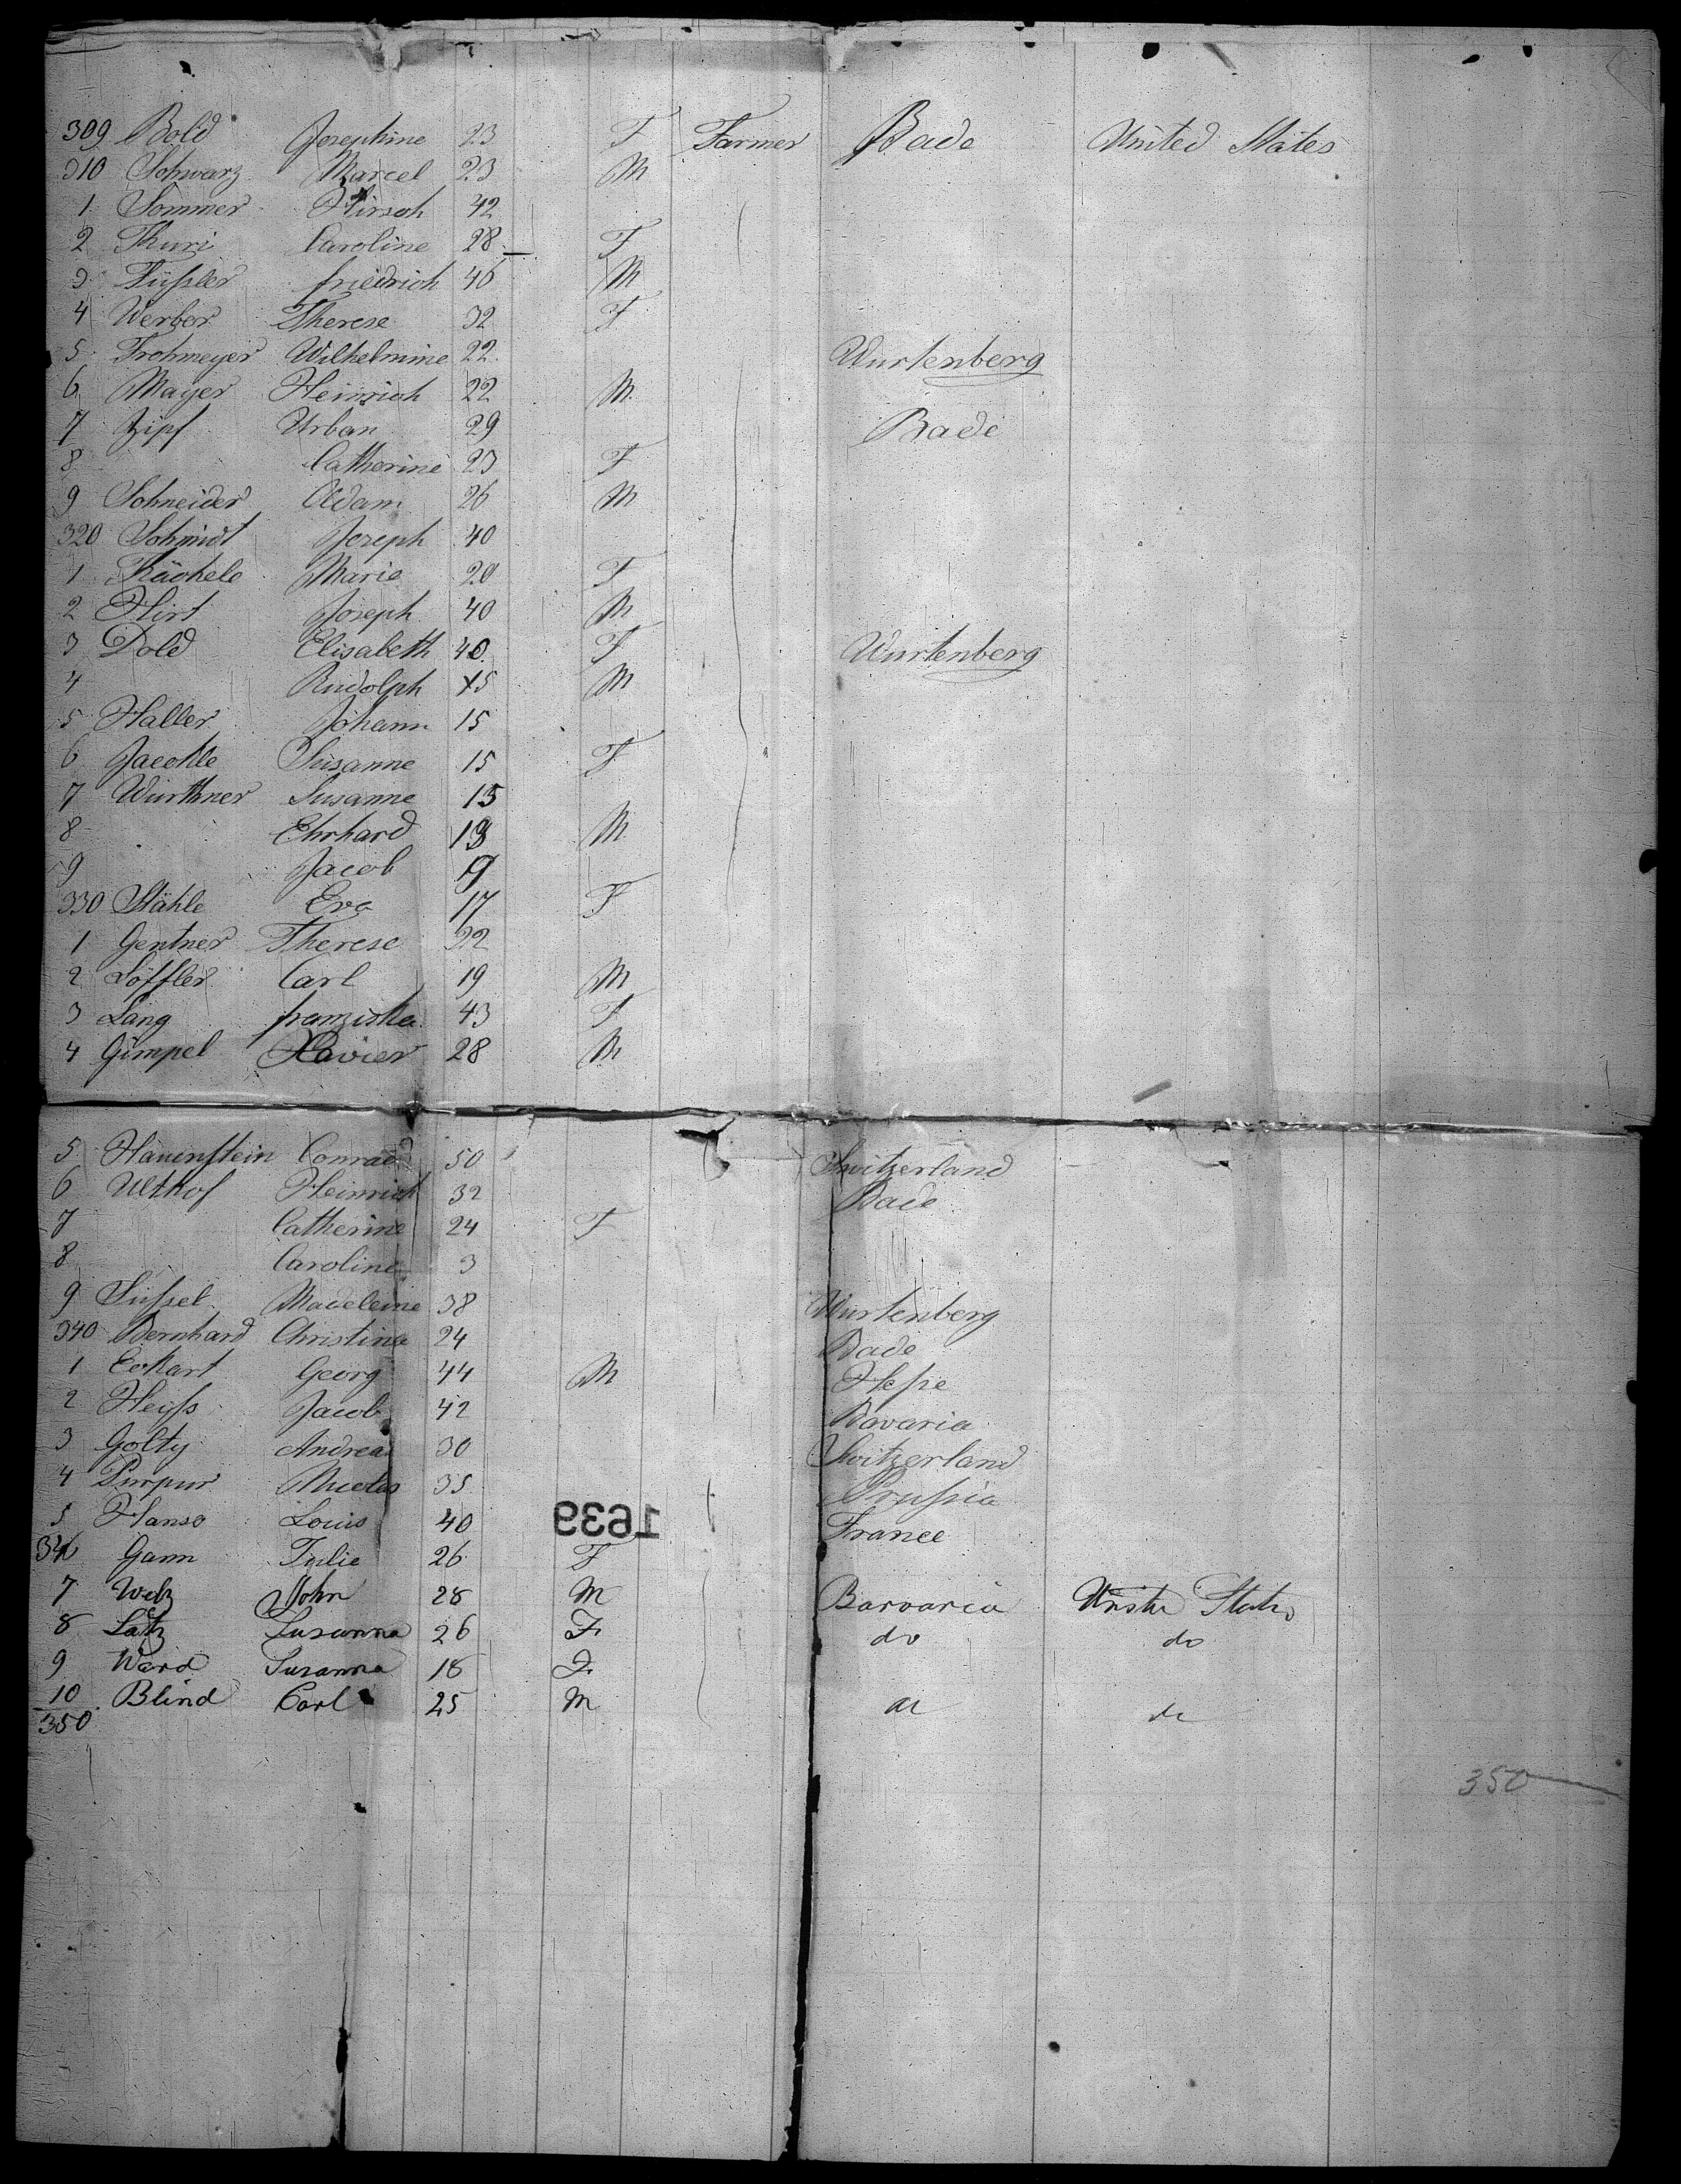 309 Bold Josephine 23 F Farmer Bade United States
310 Schwarz Marcel 23 M
1 Sommer Hirsch 42
2 Thuri Caroline 28 F
3 Füssler friedrich 46 M
4 Werber Therese 32 F
5 Frohmeyer Wilhelmine 22 Wurtenberg
6 Mayer Heinrich 22 M
7 Zipf Urban 29 Bade
8 Catherine 23 F
9 Schneider Adam 26 M
320 Schmidt Joseph 40
1 Kächele Marie 20 F
2 Hirt Joseph 40 M
3 Dold Elisabeth 40 F Wurtenberg
4 Rudolph 15 M
5 Haller Johann 15
6 Jaeckle Susanne 15 F
7 Würthner Susanne 15
8 Ehrhard 13 M
9 Jacob 9
330 Stähle Eva 17 F
1 Gentner Therese 22
2 Löffler Carl 19 M
3 Lang franziska 43 F
4 Gimpel Xavier 28 M
5 Hauenstein Conrad 50 Switzerland
6 Althof Heinrich 32 Bade
7 Catherine 24 F
8 Caroline 3
9 Süssel Madeleine 38 Wurtenberg
340 Bernhard Christina 24 Bade
1 Eckart Georg 44 M Hesse
2 Heiss Jacob 42 Bavaria
3 Golty Andreas 30 Switzerland
4 Purpur Nicolas 35 Prussia
5 Hanso Louis 40 France
1639
346 Gann Julie 26 F
7 Welz John 28 M Barvaria Unite States
8 Latz Susanna 26 F do do
9 Ward Susanna 18 F
10 Blind Carl 25 M do do
350
350